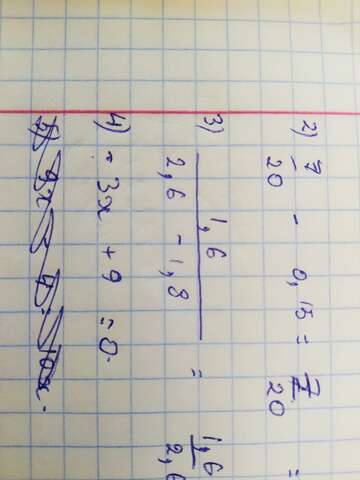 2) 7/20 - 0,15 = 7/20 =
3) 1,6/2,6 - 1,8 = 1,6/2,6
4) - 3x + 9 = 0.